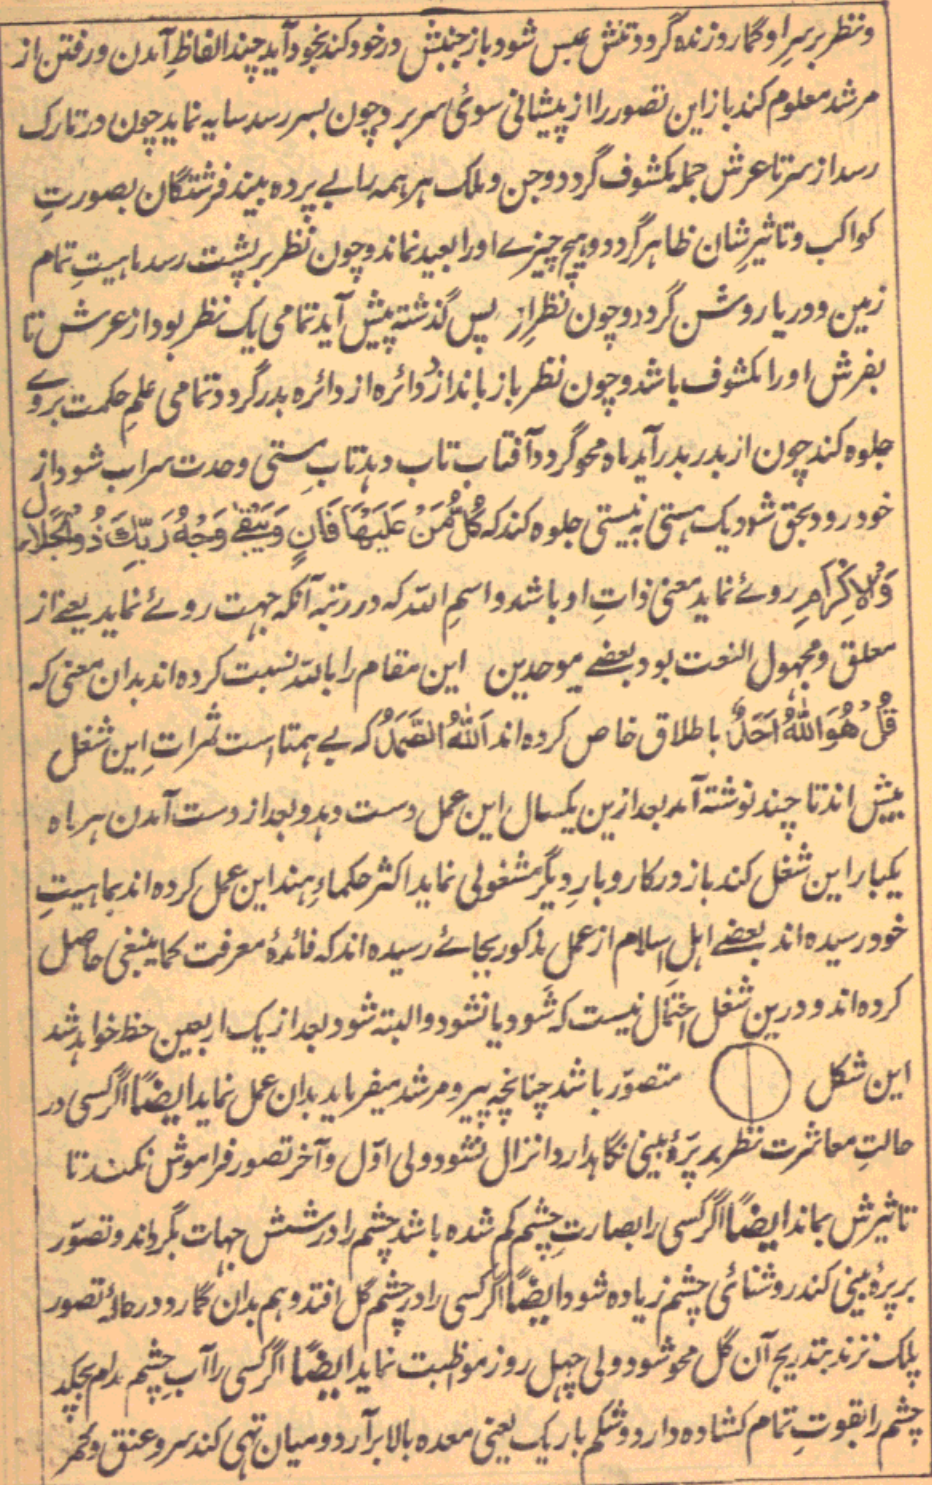 ونظر بر سرِ او گمارد زنده گردد تنش عبس شود باز جنبش در خود کند بخود آید چند الفاظِ آمدن و رفتن از
مرشد معلوم کند باز این تصور را از پیشانی سوئی سر برد چون بسر رسد سایه نماید چون در تارک
رسد از سر تا عرش جمله مکشوف گردد و جن و ملک هر همه را بے پرده بیند فرشتگان بصورتِ
کواکب و تاثیرِ شان ظاهر گردد و هیچ چیزے او را بعید نماند و چون نظر بر پشت رسد ماهیتِ تمام
زمین و دریا روشن گردد و چون نظر از پس گذشته پیش آید تمامی یک نظر بود از عرش تا
بفرش او را مکشوف باشد و چون نظر باز باندازد دائره از دائره بدر گردد تمامی علمِ حکمت بر وے
جلوه کند چون از بدر بدر آید ماه محو گردد آفتاب تاب دهد تابِ مستی وحدت سراب شود از
خود رود بحق شود یک هستی به نیستی جلوه کند که کُلُّ مَنْ عَلَیْهَا فَانٍ وَیَبْقٰی وَجْهُ رَبِّکَ ذُو الْجَلَالِ
وَالْاِکْرَامِ روئے نماید معنی ذاتِ او باشد و اسمِ الله که در رتبه آنکه جهت روئے نماید یعنے از
معلق و مجهول النعت بود بعضے موحدین این مقام را بالله نسبت کرده اند بدان معنی که
قُلْ هُوَ اللّٰهُ اَحَدٌ باطلاق خاص کرده اند اَللّٰهُ الصَّمَدُ که بے همتا است ثمراتِ این شغل
بیش اند تا چند نوشته آمد بعد ازین یکسال این عمل دست دهد و بعد از دست آمدن هر ماه
یکبار این شغل کند باز در کار و بارِ دیگر مشغولی نماید اکثر حکماءِ هند این عمل کرده اند بماهیتِ
خود رسیده اند بعضے اهلِ اسلام از عمل مذکور بجائے رسیده اند که فائدۀ معرفت کما ینبغی حاصل
کرده اند و درین شغل احتمال نیست که شود یا نشود و البته شود بعد از یک اربعین حظ خواهد شد
این شکل متصوّر باشد چنانچه پیر و مرشد میفرماید بدان عمل نماید ایضًا اگر کسی در
حالتِ معاشرت نظر بر پرّۀ بینی نگاهدارد انزال نشود ولی اوّل و آخر تصور فراموش نکند تا
تاثیرش بماند ایضًا اگر کسی را بصارتِ چشم کم شده باشد چشم را در شش جهات بگرداند و تصوّر
بر پرۀ بینی کند روشنائی چشم زیاده شود ایضًا اگر کسی را در چشم گل افتد و هم بدان گمارد در حالۀ تصور
پلک نزند بتدریج آن گل محو شود ولی چهل روز موظبت نماید ایضًا اگر کسی را آبِ چشم مدام بچکد
چشم را بقوتِ تمام کشاده دارد و شکم باریک یعنی معده بالا برآرد و میان تهی کند سر و عنق و کمر